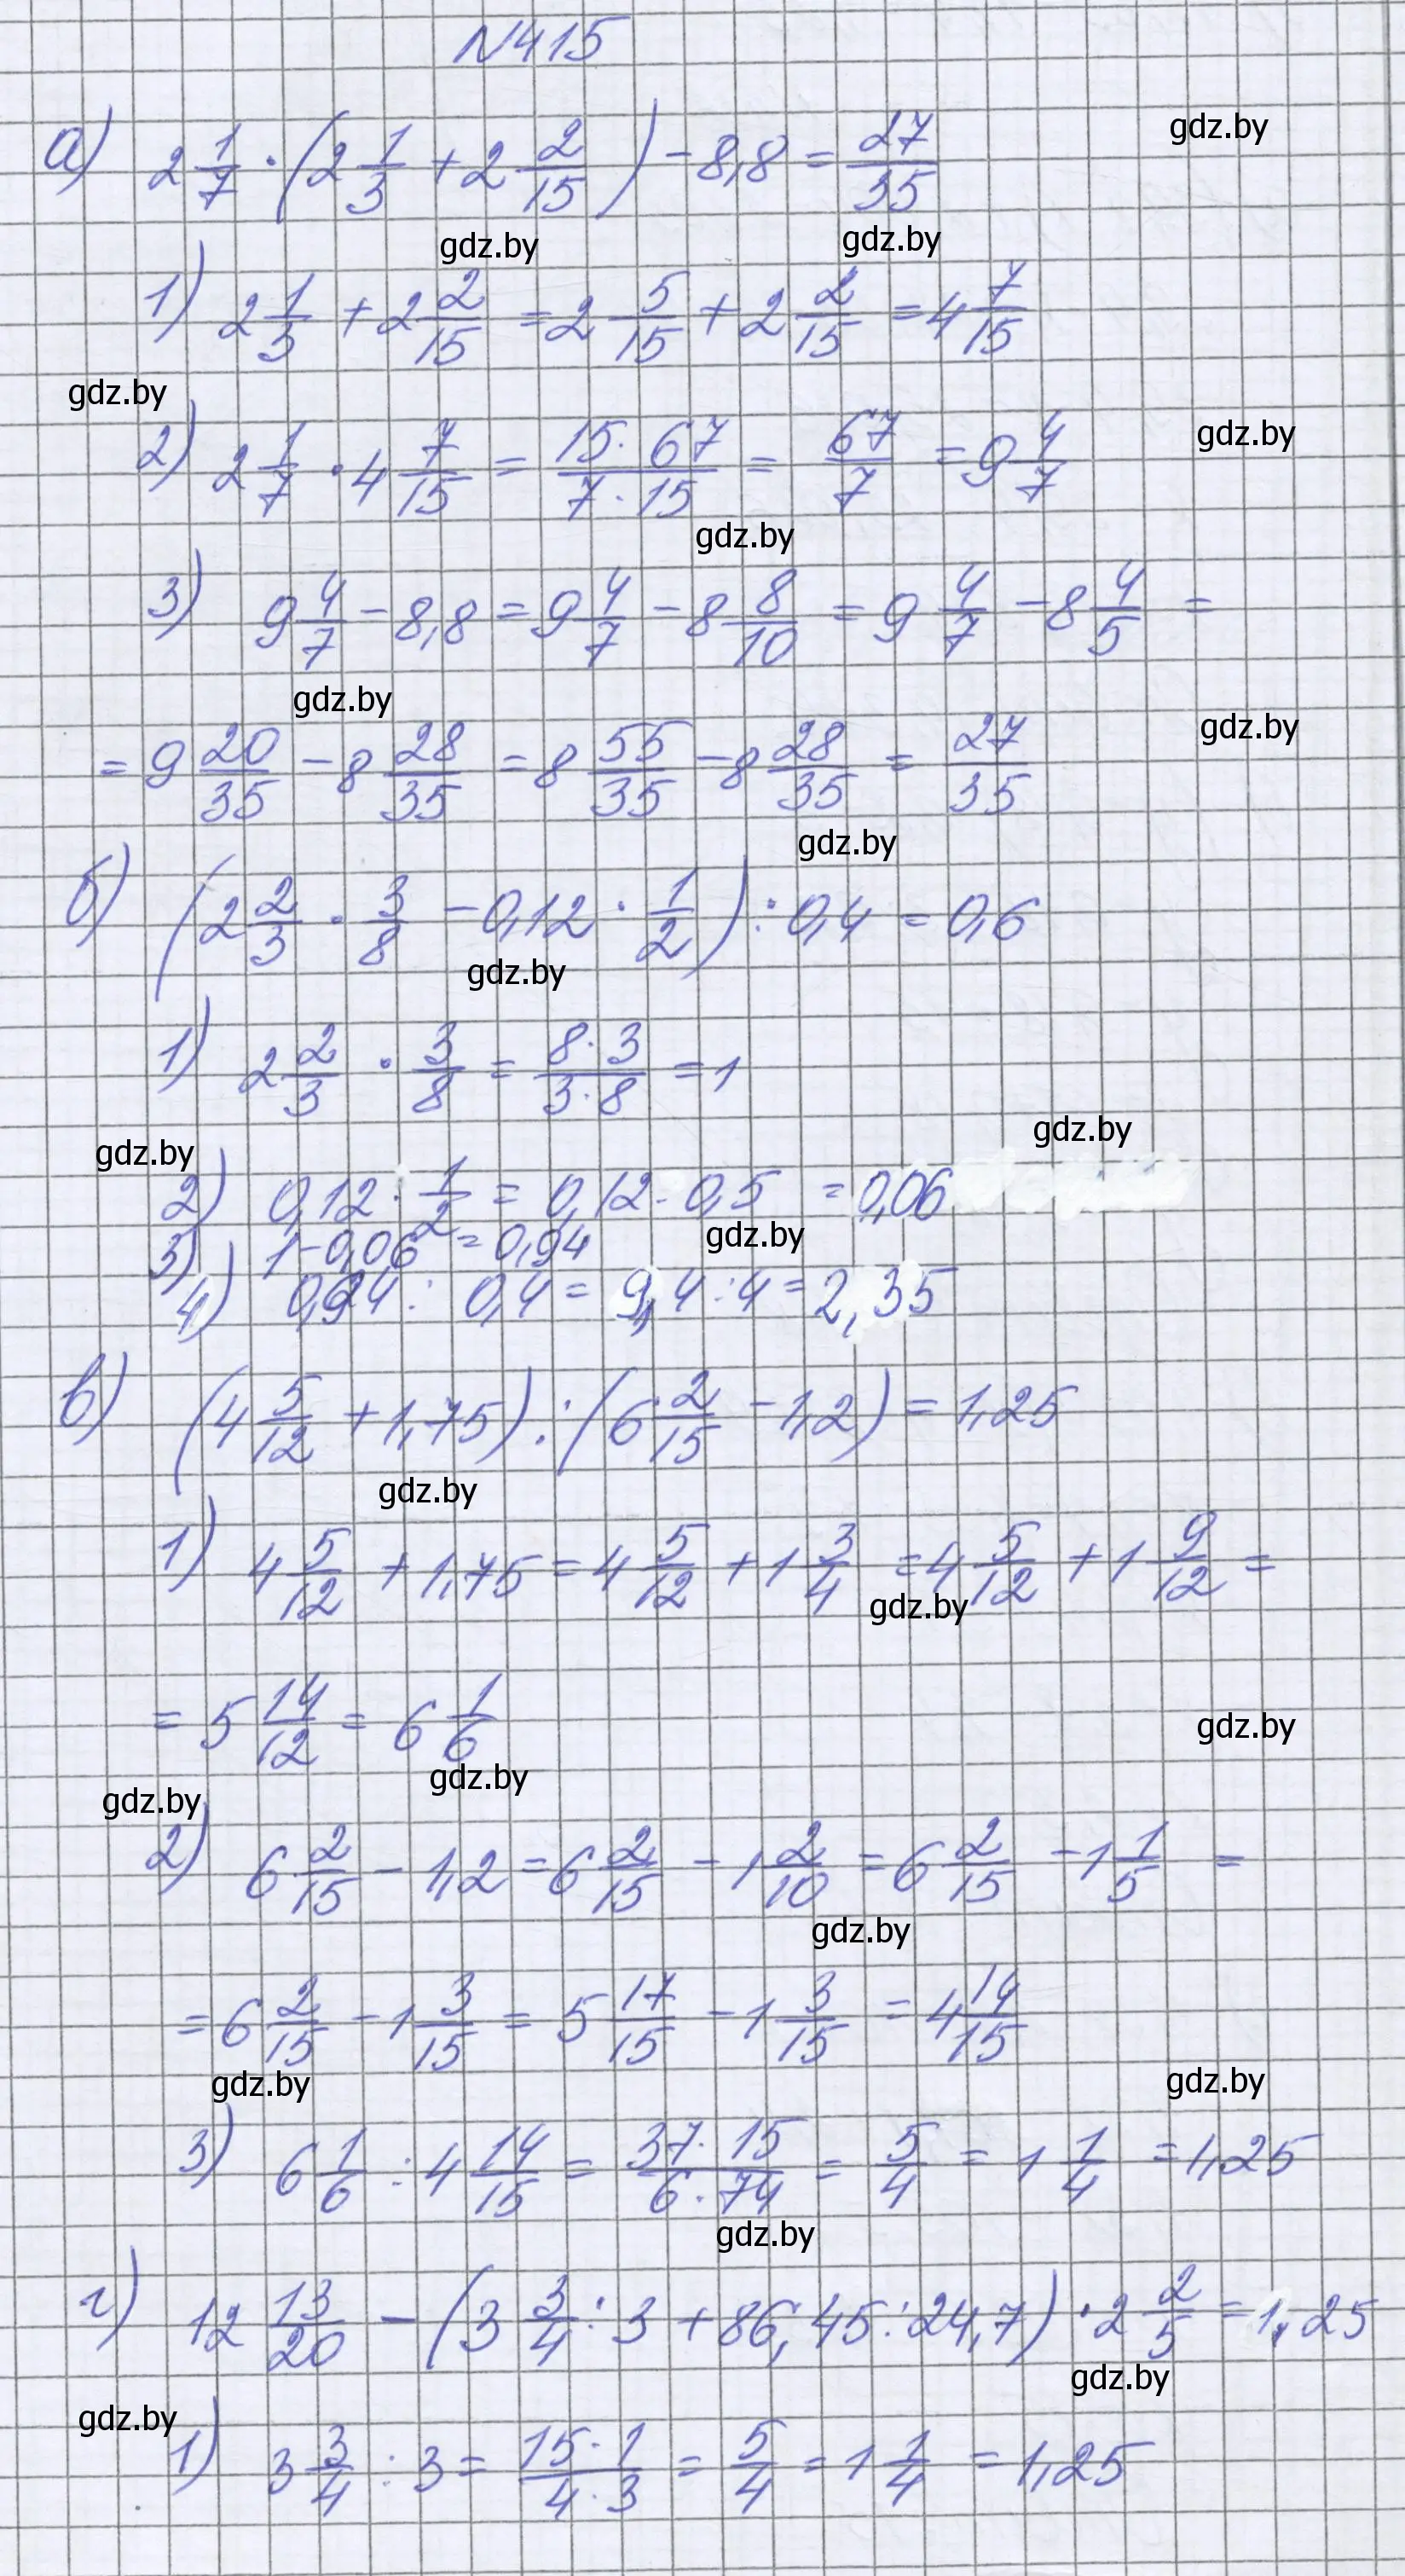 N415
а) 2 1/7 · (2 1/3 + 2 2/15) - 8,8 = 27/35
gdz.by
gdz.by gdz.by
1) 2 1/3 + 2 2/15 = 2 5/15 + 2 2/15 = 4 7/15
gdz.by
2) 2 1/7 · 4 7/15 = 15·67/7·15 = 67/7 = 9 4/7
gdz.by
gdz.by
3) 9 4/7 - 8,8 = 9 4/7 - 8 8/10 = 9 4/7 - 8 4/5 =
gdz.by
gdz.by
= 9 20/35 - 8 28/35 = 8 55/35 - 8 28/35 = 27/35
gdz.by
б) (2 2/3 · 3/8 - 0,12 · 1/2) : 0,4 = 0,6
gdz.by
1) 2 2/3 · 3/8 = 8·3/3·8 = 1
gdz.by
gdz.by
2) 0,12 · 1/2 = 0,12 · 0,5 = 0,06
gdz.by
3) 1 - 0,06 = 0,94
4) 0,94 : 0,4 = 9,4 : 4 = 2,35
в) (4 5/12 + 1,75) : (6 2/15 - 1,2) = 1,25
gdz.by
1) 4 5/12 + 1,75 = 4 5/12 + 1 3/4 = 4 5/12 + 1 9/12 =
gdz.by
= 5 14/12 = 6 1/6
gdz.by
gdz.by
gdz.by
2) 6 2/15 - 1,2 = 6 2/15 - 1 2/10 = 6 2/15 - 1 1/5 =
gdz.by
= 6 2/15 - 1 3/15 = 5 17/15 - 1 3/15 = 4 14/15
gdz.by gdz.by
3) 6 1/6 : 4 14/15 = 37·15/6·74 = 5/4 = 1 1/4 = 1,25
gdz.by
г) 12 13/20 - (3 3/4 : 3 + 86,45 : 24,7) · 2 2/5 = 1,25
gdz.by
gdz.by
1) 3 3/4 : 3 = 15·1/4·3 = 5/4 = 1 1/4 = 1,25